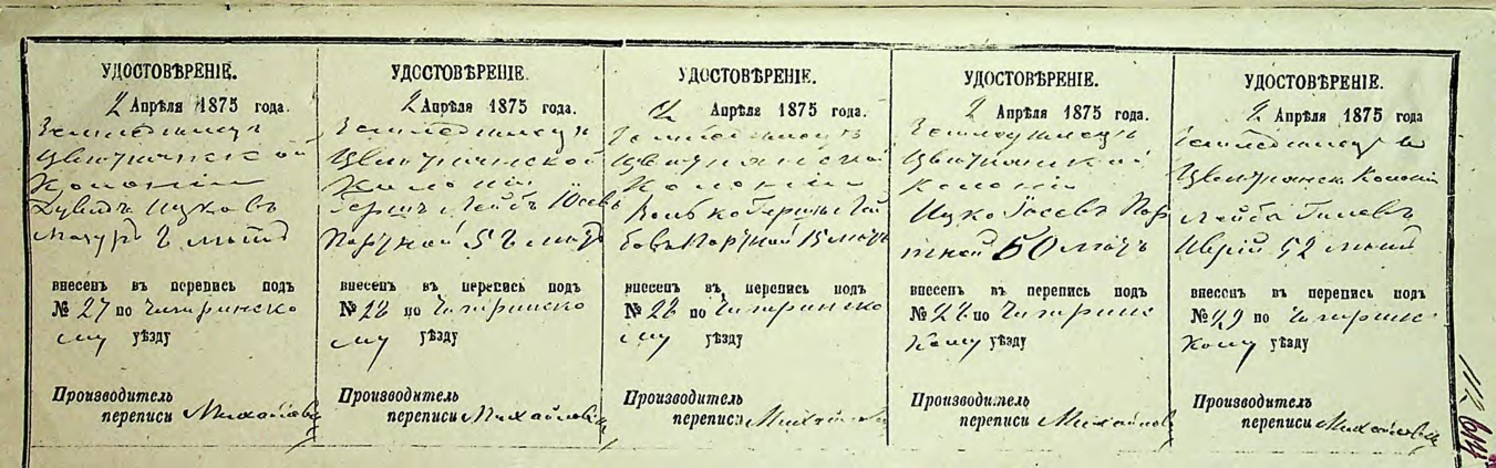 УДОСТОВѢРЕНІЕ.
2 Апрѣля 1875 года.
Земледѣлецъ
Цвитнянской
Колоніи
Дувидъ Ицковъ
Мазуръ лѣтъ
внесенъ въ перепись подъ
№ 27 по Чигиринско
му уѣзду
Производитель
переписи Михайловъ
УДОСТОВѢРЕНІЕ.
2 Апрѣля 1875 года.
Земледѣлецъ
Цвитнянской
Колоніи
Гершъ Лейбъ Юсевъ
Портной лѣтъ
внесенъ въ перепись подъ
№ 28 по Чигиринско
му уѣзду
Производитель
переписи Михайловъ
УДОСТОВѢРЕНІЕ.
2 Апрѣля 1875 года.
Земледѣлецъ
Цвитнянской
Колоніи
Волько Гершъ Лей
бовъ Портной 15 лѣтъ
внесенъ въ перепись подъ
№ 28 по Чигиринско
му уѣзду
Производитель
переписи Михайловъ
УДОСТОВѢРЕНІЕ.
2 Апрѣля 1875 года.
Земледѣлецъ
Цвитнянской
Колоніи
Ицко Іосевъ Пор
тной 50 лѣтъ
внесенъ въ перепись подъ
№ 28 по Чигиринс
кому уѣзду
Производитель
переписи Михайловъ
УДОСТОВѢРЕНІЕ.
2 Апрѣля 1875 года
Земледѣлецъ
Цвитнянск Колоніи
Лейба
52 лѣтъ
внесенъ въ перепись подъ
№ 29 по Чигиринс
кому уѣзду
Производитель
переписи Михайловъ